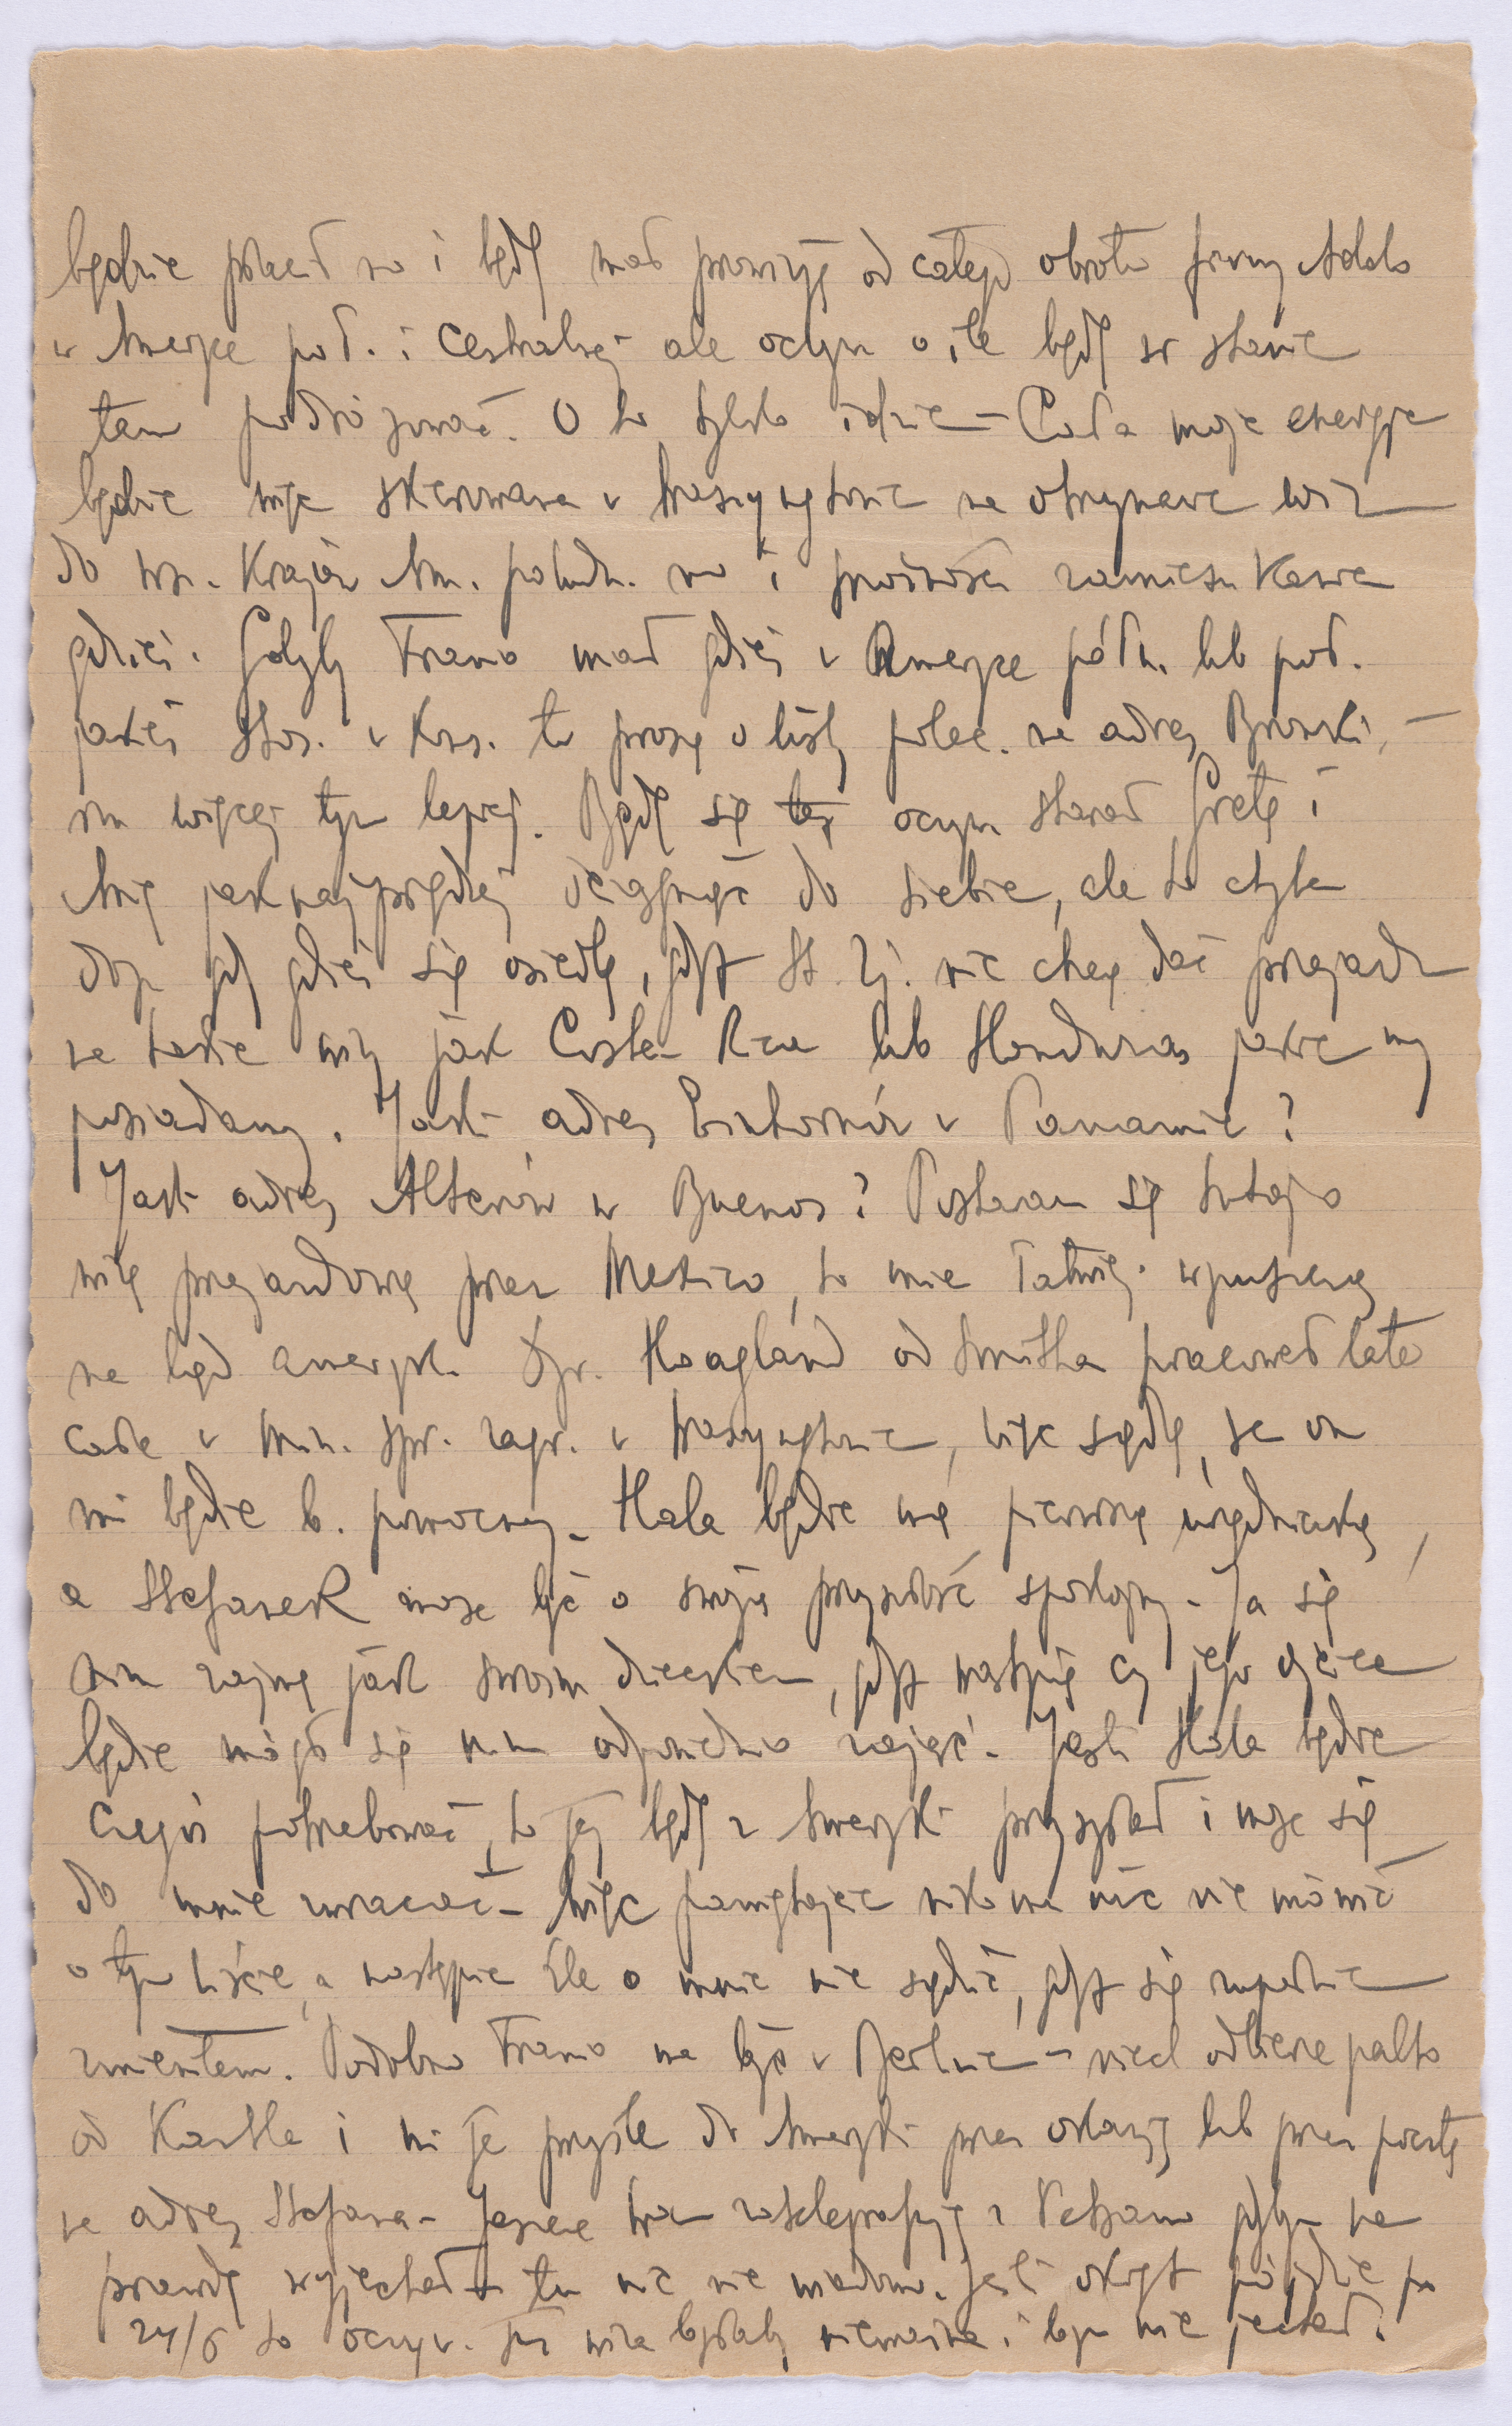 będzie płacił no i będę miał prowizję od całego obrotu firmy
w Ameryce poł. i Centralnej ale oczyw o ile będę w stanie
tam podróżować. O to tylko idzie – Cała moja energja
będzie więc skierowana w Waszyngtonie na otrzymanie wiz
do wsz. Krajów Am. połudn. no i możność zamieszkania
gdzieś. Gdyby Franio miał gdzieś w Ameryce półn. lub poł.
jakieś stos. w Kons. to proszę o listy polec. na adres Bronski, –
im więcej tym lepiej. Będę się oczyw starał Gretę i
Anię jak najprędzej ściągnąć do siebie, ale to
gdy gdzieś się osiedlę, gdyż St. Zj. nie chcą dać przejazdu
na takie wizy jak Costa-Rica lub Honduras jakie my
posiadamy. Jaki adres w Panamie?
Jaki adres Alterów w Buenos? Postaram się tutaj o
wizę przejazdową przez Mexico, to mnie łatwiej wpuszczą
na ląd ameryk. Dyr. Hoagland od Smitha pracował lata
całe w Min. spr. zagr. w Waszyngtonie, więc sądzę, że on
mi będzie b. pomocny – Hala będzie mą pierwszą urzędniczką,
a Stefanek może być o swoją przyszłość spokojny – Ja się
nim zajmę jak swoim dzieckiem, gdyż wątpię czy jego ojciec
będzie mógł się nim odpowiednio zająć – Jeśli Hala będzie
czegoś potrzebować, to jej będę z Ameryki przysyłał i może się
do mnie zwracać – Więc pamiętajcie nikomu nic nie mówić
o tym liście, a następnie źle o mnie nie sądzić, gdyż się zupełnie
zmieniłem. Podobno Franio ma być w Berlinie – niech odbierze palto
od Kartla i mi je przyśle do Ameryki przez okazję lub przez pocztę
na adres Stefana – Jeszcze Wam zatelegrafuję z gdybym na
prawdę wyjechał – tu nic nie wiadomo. Jeśli okręt pójdzie po
24/6 to oczyw. już wiza byłaby nieważna i bym nie jechał.